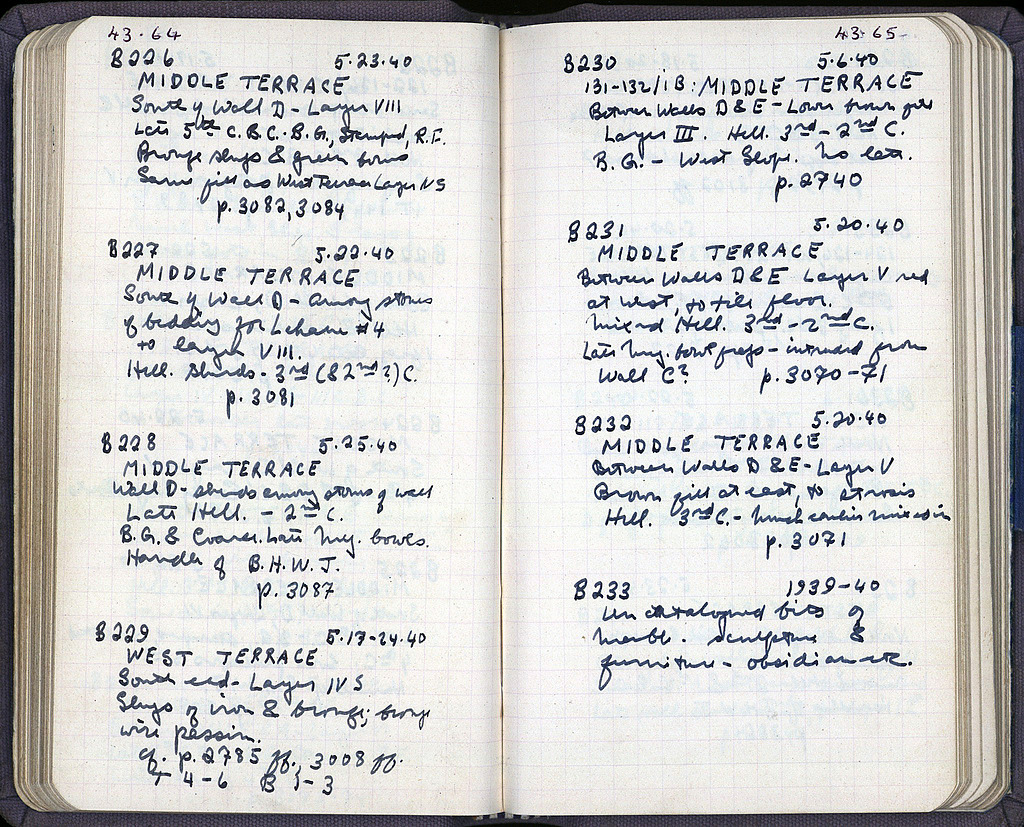 43·64
B226 5·23·40
MIDDLE TERRACE
South of Wall D - Layer VIII
Late 5th C. B.C. - B.G., Stamped, R.F.
Bronze slugs & green bows
Same fill as West Terrace Layer IVS
p. 3082, 3084
B227 5·22·40
MIDDLE TERRACE
South of Wall D - among stones
of bedding for Lekane #4
to layer VIII.
Hell. Sherds - 3rd (& 2nd?) C.
p. 3081
B228 5·25·40
MIDDLE TERRACE
Wall D - sherds among stones of wall
Late Hell. - 2nd C.
B.G. & Coarse. Late Meg. bowls.
Handle of B.H.W.J.
p. 3087
B229 5·17-24·40
WEST TERRACE
South end - Layer IVS
Slugs of iron & bronze: bronze
wire passim.
cf. p. 2785 ff., 3008 ff.
T 4-6 B 1-3
43·65
B230 5·6·40
131-132/1B: MIDDLE TERRACE
Between Walls D & E - Lower brown fill
Layer III. Hell. 3rd - 2nd C.
B.G. - West Slope. No late.
p. 2740
B231 5·20·40
MIDDLE TERRACE
Between Walls D & E Layer V red
at west, to fill floor.
Mixed Hell. 3rd - 2nd C.
Late Meg. bowl frags - intruded from
Wall C? p. 3070-71
B232 5·20·40
MIDDLE TERRACE
Between Walls D & E - Layer V
Brown fill at east, to stosis
Hell. 3rd C. - much earlier mixed in
p. 3071
B233 1939-40
Uncatalogued bits of
marble sculpture &
furniture - obsidian etc.